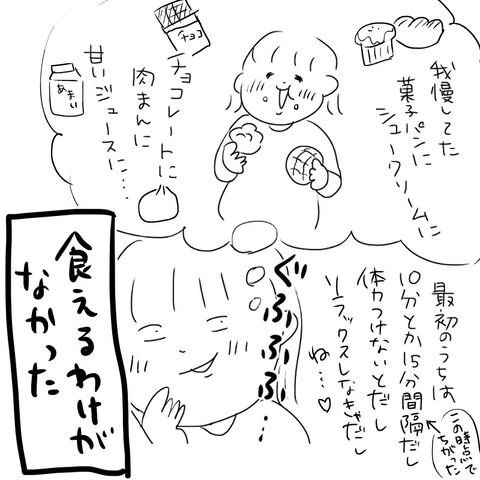 我慢してた
菓子パンに
シュークリームに
チョコ
チョコレートに
肉まんに
甘いジュースに…
あまい
最初のうちは
10分とか15分間隔だし
この時点で
ちがった
体力つけないとだし
リラックスしなきゃだし
ね…♡
ぐふふふ…
食えるわけが
なかった